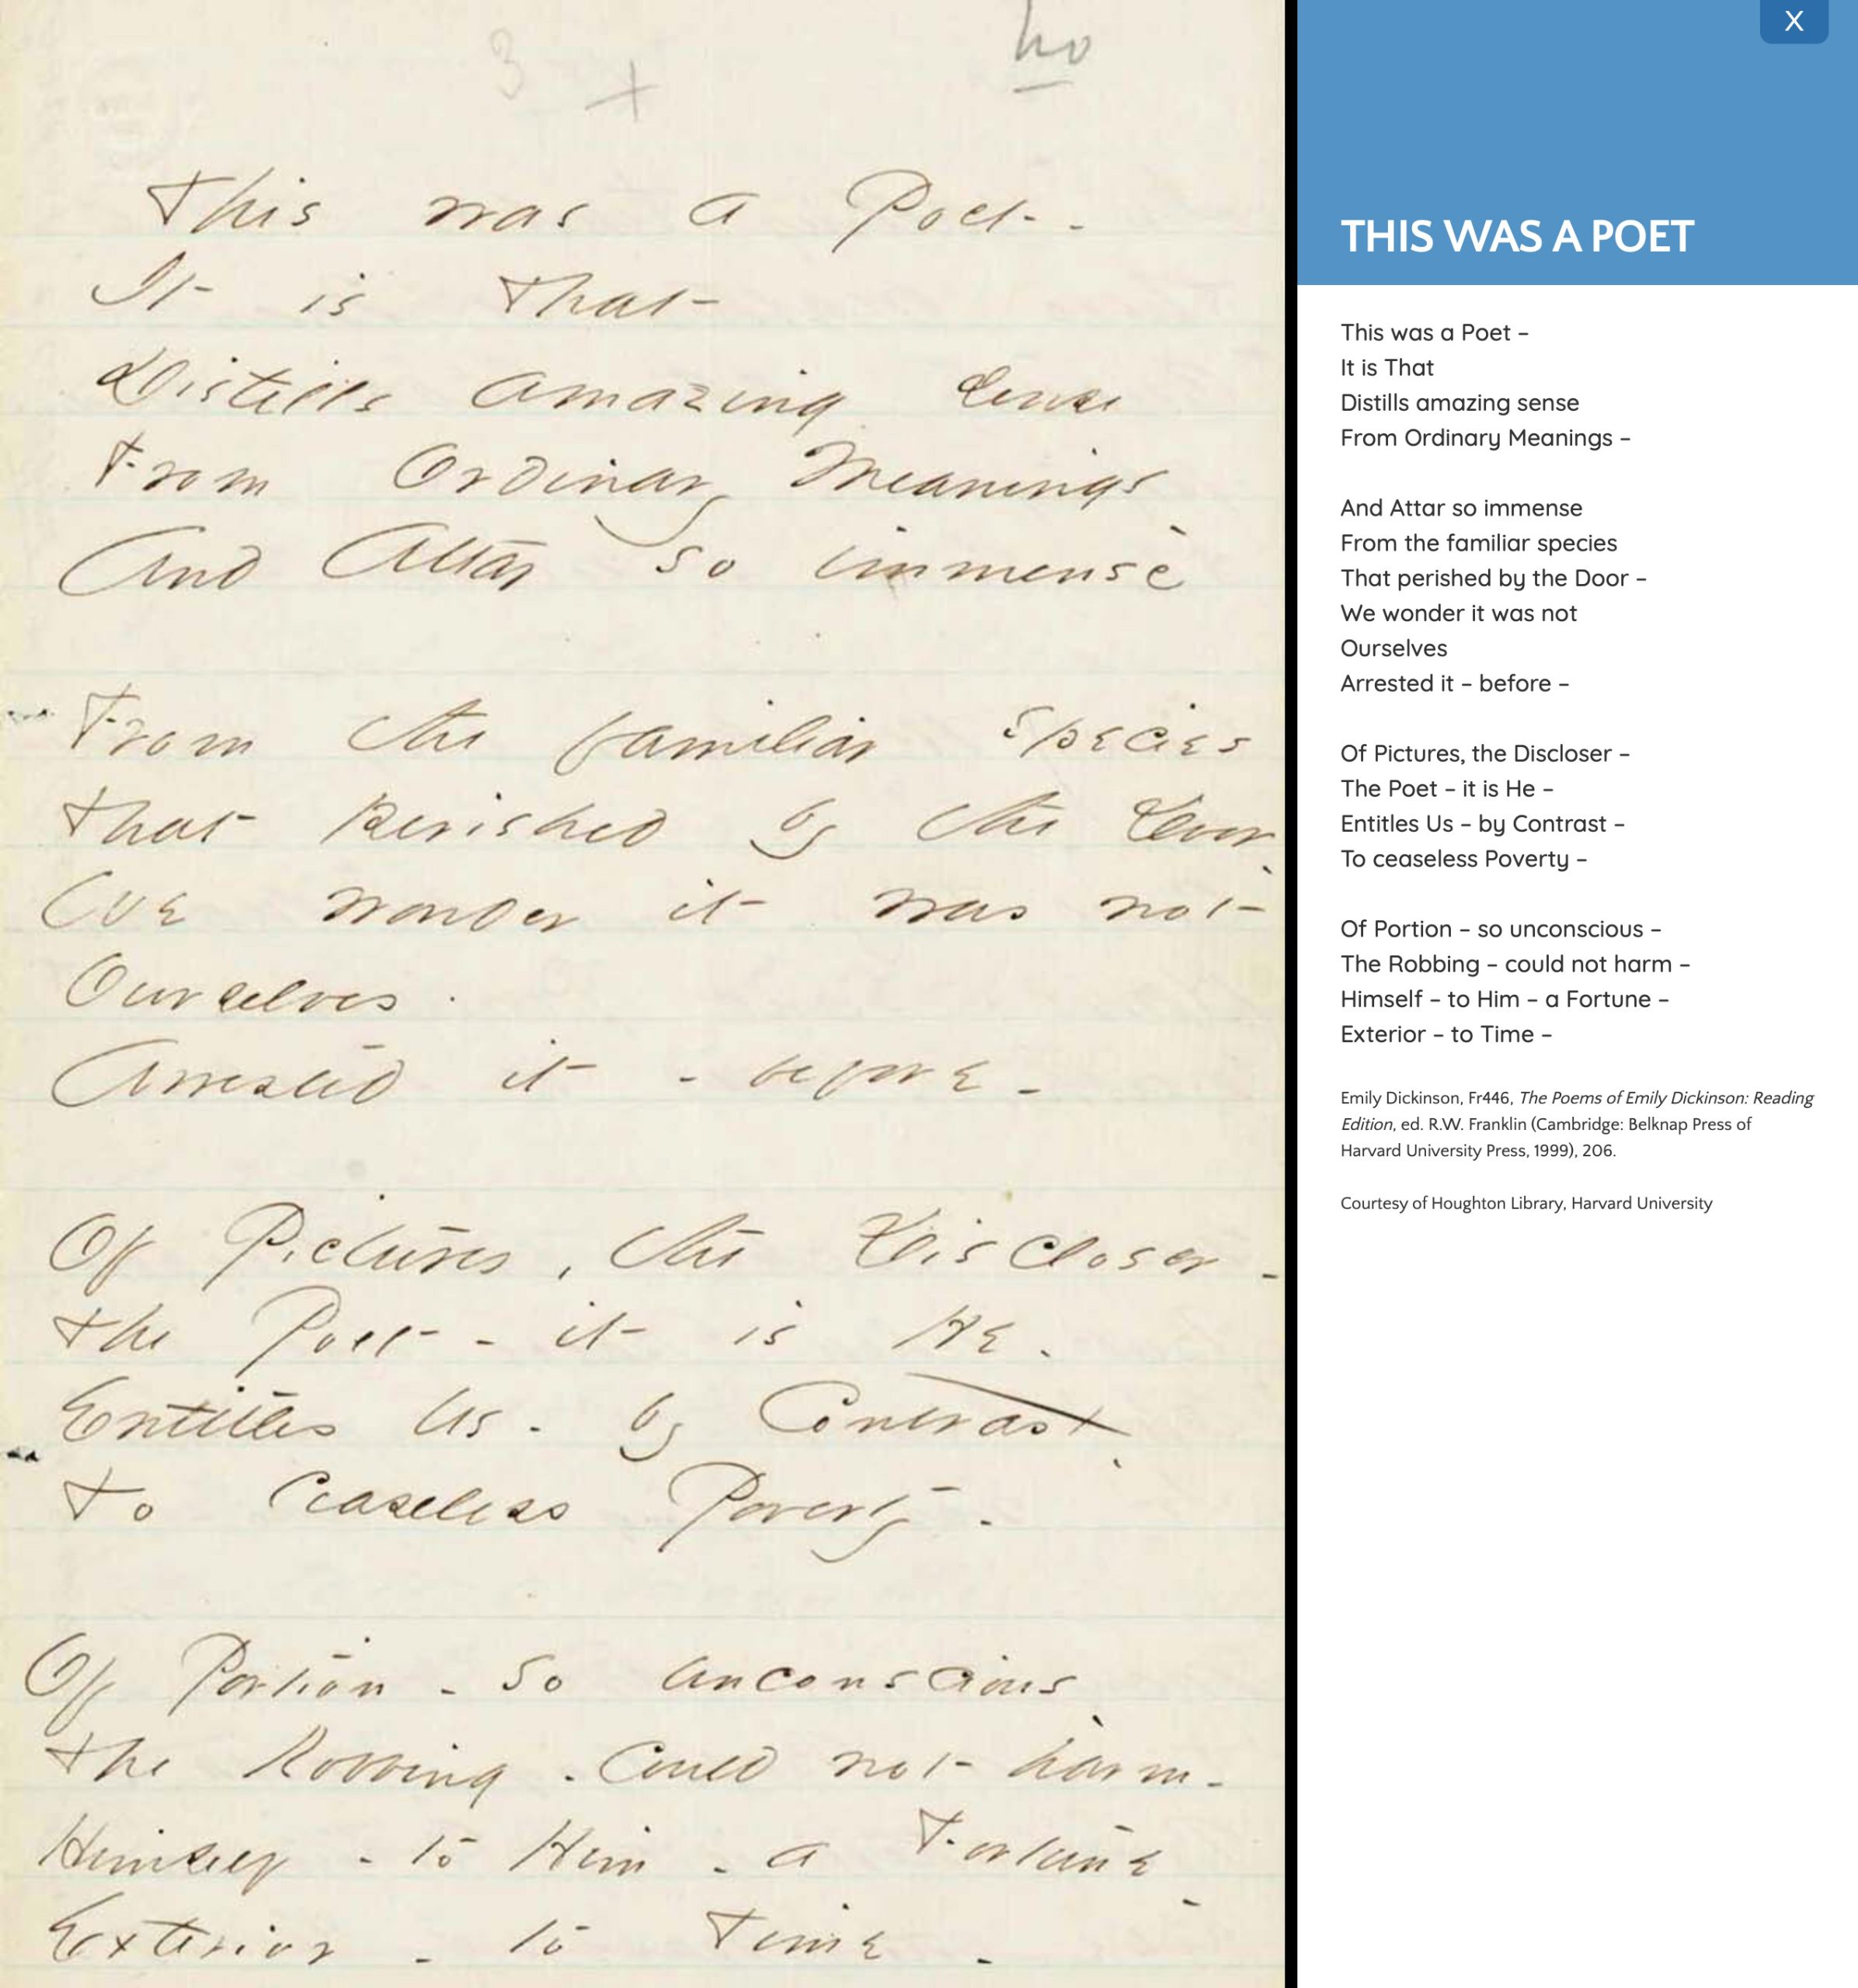 3 +
no
This was a Poet -
It is That
Distills amazing sense
From Ordinary Meanings -
And Attar so immense
From the familiar species
That perished by the Door -
We wonder it was not
Ourselves
Arrested it - before -
Of Pictures, the Discloser -
The Poet - it is He -
Entitles Us - by Contrast -
To ceaseless Poverty -
Of Portion - so unconscious -
The Robbing - could not harm -
Himself - to Him - a Fortune -
Exterior - to Time -
X
THIS WAS A POET
This was a Poet –
It is That
Distills amazing sense
From Ordinary Meanings –
And Attar so immense
From the familiar species
That perished by the Door –
We wonder it was not
Ourselves
Arrested it – before –
Of Pictures, the Discloser –
The Poet – it is He –
Entitles Us – by Contrast –
To ceaseless Poverty –
Of Portion – so unconscious –
The Robbing – could not harm –
Himself – to Him – a Fortune –
Exterior – to Time –
Emily Dickinson, Fr446, The Poems of Emily Dickinson: Reading
Edition, ed. R.W. Franklin (Cambridge: Belknap Press of
Harvard University Press, 1999), 206.
Courtesy of Houghton Library, Harvard University